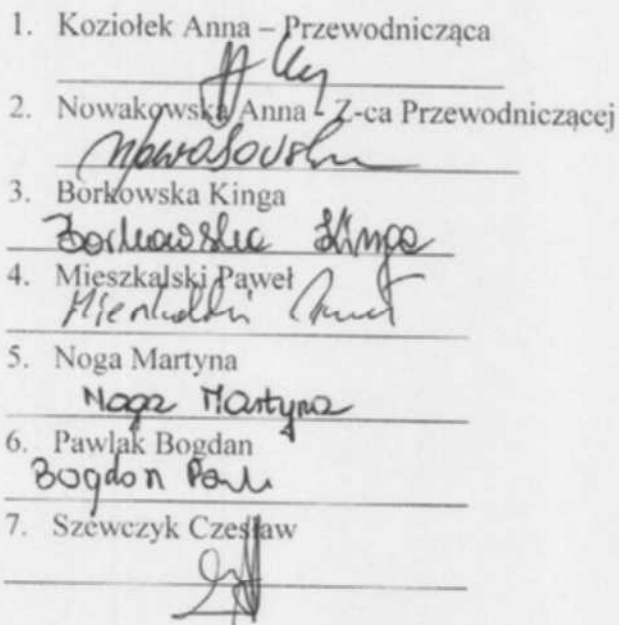 1. Koziołek Anna – Przewodnicząca
2. Nowakowska Anna - Z-ca Przewodniczącej
3. Borkowska Kinga
Borkowska Kinga
4. Mieszkalski Paweł
5. Noga Martyna
Noga Martyna
6. Pawlak Bogdan
Bogdan
7. Szewczyk Czesław